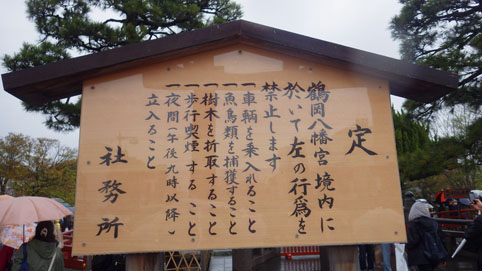 定
鶴岡八幡宮境内に
於いて左の行為を
禁止します
一車輌を乗入れること
一魚鳥類を捕獲すること
一樹木を折取すること
一歩行喫煙すること
一夜間(午後九時以降)
立入ること
社務所